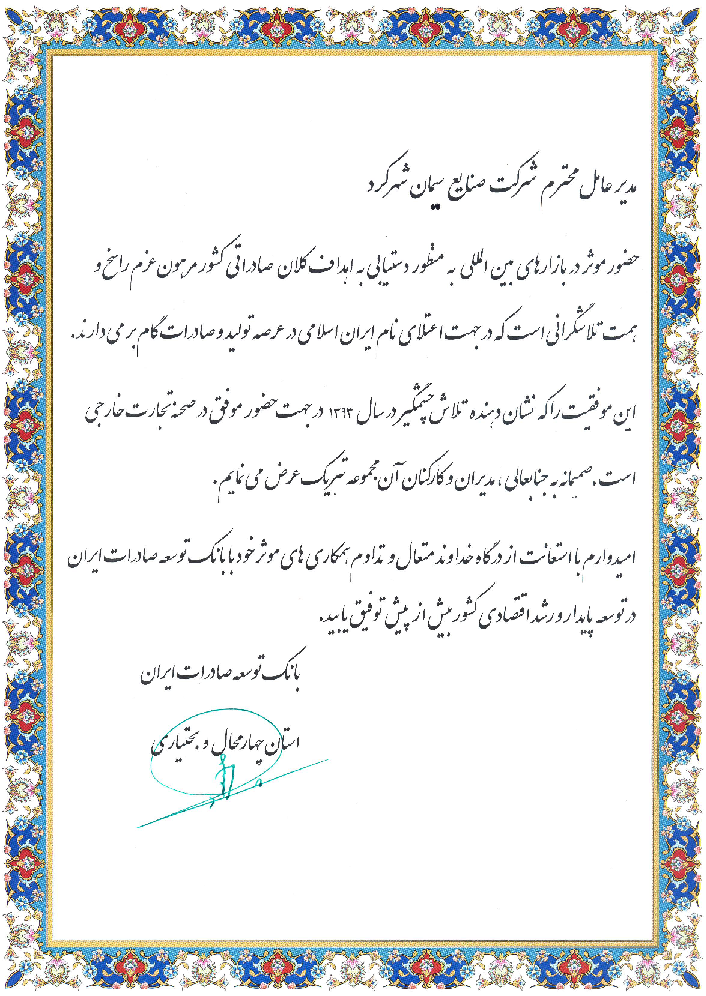 مدیر عامل محترم شرکت صنایع سیمان شهرکرد
حضور موثر در بازارهای بین المللی به منظور دستیابی به اهداف کلان صادراتی کشور مرهون عزم راسخ و
همت تلاشگرانی است که در جهت اعتلای نام ایران اسلامی در عرصه تولید و صادرات گام بر می دارند.
این موفقیت را که نشان دهنده تلاش چشمگیر در سال ۱۳۹۳ در جهت حضور موفق در صحنه تجارت خارجی
است، صمیمانه به جنابعالی، مدیران و کارکنان آن مجموعه تبریک عرض می نمایم.
امیدوارم با استعانت از درگاه خداوند متعال و تداوم همکاری های موثر خود با بانک توسعه صادرات ایران
در توسعه پایدار و رشد اقتصادی کشور بیش از پیش توفیق یابید.
بانک توسعه صادرات ایران
استان چهارمحال و بختیاری